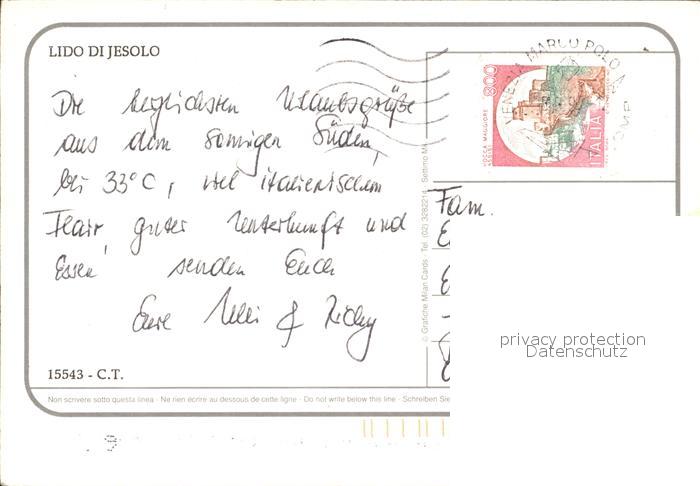 LIDO DI JESOLO
Die herzlichsten Urlaubsgrüße
aus dem sonnigen Süden,
bei 33°C, viel italienischem
Flair, guter Unterkunft und
Essen senden Euch
Eure & Ricky
15543 - C.T.
Non scrivere sotto questa linea · Ne rien écrire au dessous de cette ligne · Do not write below this line · Schreiben Sie
© Grafiche Milan Cards · Tel. (02) 3282214 · Settimo M
VENEZIA MARCO POLO
800
ROCCA MAGGIORE
ASSISI
ITALIA
Fam.
privacy protection
Datenschutz